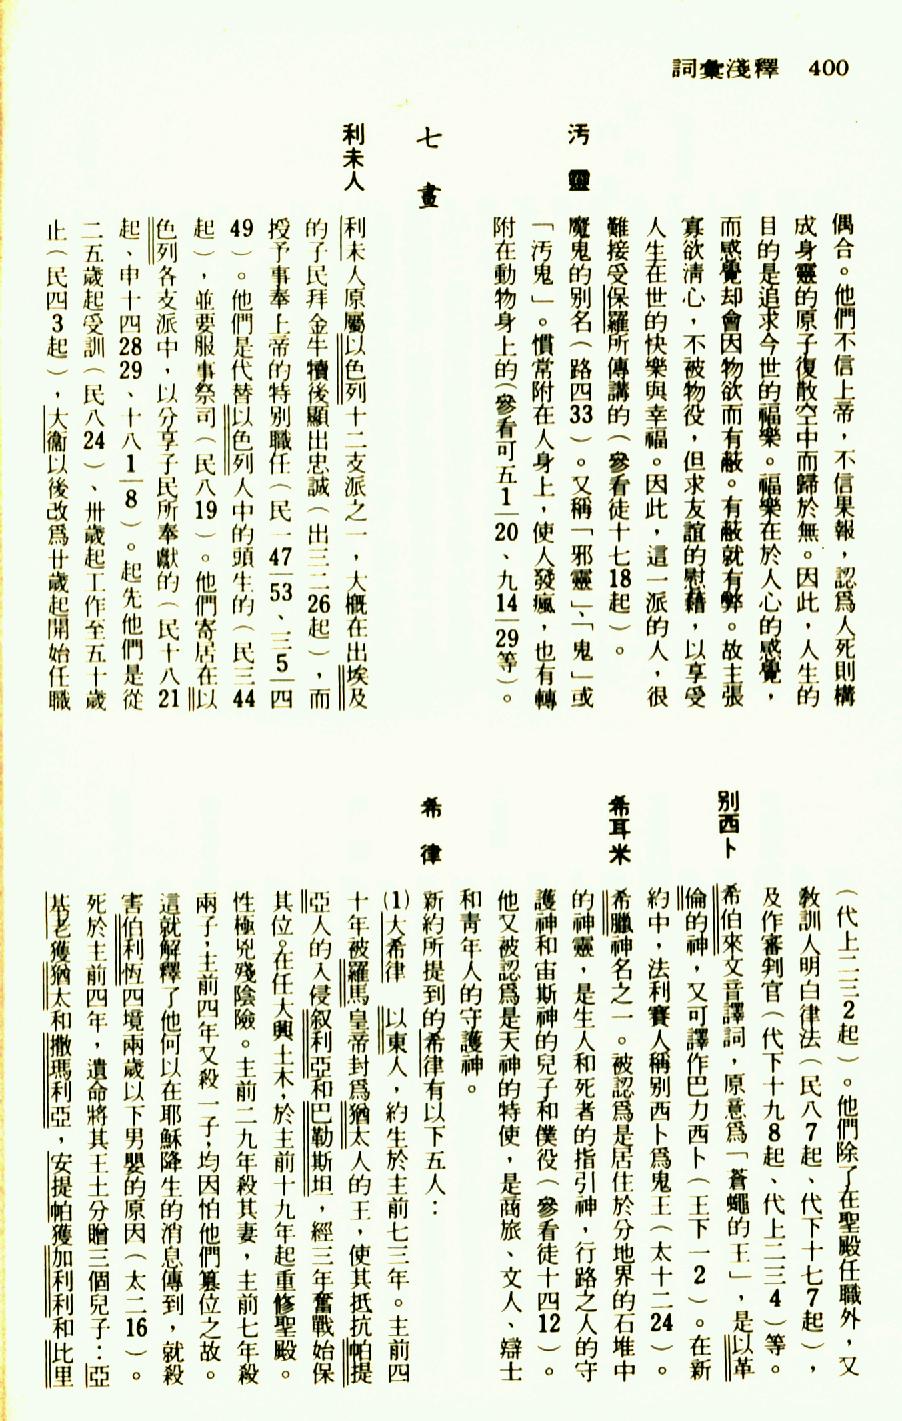 詞彙淺釋　400
偶合。他們不信上帝，不信果報，認爲人死則構
成身靈的原子復散空中而歸於無。因此，人生的
目的是追求今世的福樂。福樂在於人心的感覺，
而感覺却會因物欲而有蔽。有蔽就有弊。故主張
寡欲清心，不被物役，但求友誼的慰藉，以享受
人生在世的快樂與幸福。因此，這一派的人，很
難接受保羅所傳講的（參看徒十七18起）。
汚靈
魔鬼的别名（路四33）。又稱「邪靈」、「鬼」或
「汚鬼」。慣常附在人身上，使人發瘋，也有轉
附在動物身上的（參看可五1—20、九14—29等）。
七畫
利未人
利未人原屬以色列十二支派之一，大概在出埃及
的子民拜金牛犢後顯出忠誠（出三二26起），而
授予事奉上帝的特別職任（民一47—53、三5—四
49）。他們是代替以色列人中的頭生的（民三44
起），並要服事祭司（民八19）。他們寄居在以
色列各支派中，以分享子民所奉獻的（民十八21
起、申十四28 29、十八1—8）。起先他們是從
二五歲起受訓（民八24）、卅歲起工作至五十歲
止（民四3起），大衞以後改爲廿歲起開始任職
（代上二三2起）。他們除了在聖殿任職外，又
教訓人明白律法（民八7起、代下十七7起），
及作審判官（代下十九8起、代上二三4）等。
別西卜
希伯來文音譯詞，原意爲「蒼蠅的王」，是以革
倫的神，又可譯作巴力西卜（王下一2）。在新
約中，法利賽人稱別西卜爲鬼王（太十二24）。
希耳米
希臘神名之一。被認爲是居住於分地界的石堆中
的神靈，是生人和死者的指引神，行路之人的守
護神和宙斯神的兒子和僕役（參看徒十四12）。
他又被認爲是天神的特使，是商旅、文人、辯士
和靑年人的守護神。
希律
新約所提到的希律有以下五人：
(1)大希律　以東人，約生於主前七三年。主前四
十年被羅馬皇帝封爲猶太人的王，使其抵抗帕提
亞人的入侵叙利亞和巴勒斯坦，經三年奮戰始保
其位。在任大興土木，於主前十九年起重修聖殿。
性極兇殘陰險。主前二九年殺其妻，主前七年殺
兩子，主前四年又殺一子，均因怕他們篡位之故。
這就解釋了他何以在耶穌降生的消息傳到，就殺
害伯利恆四境兩歲以下男嬰的原因（太二16）。
死於主前四年，遺命將其王土分贈三個兒子：亞
基老獲猶太和撒瑪利亞，安提帕獲加利利和比里